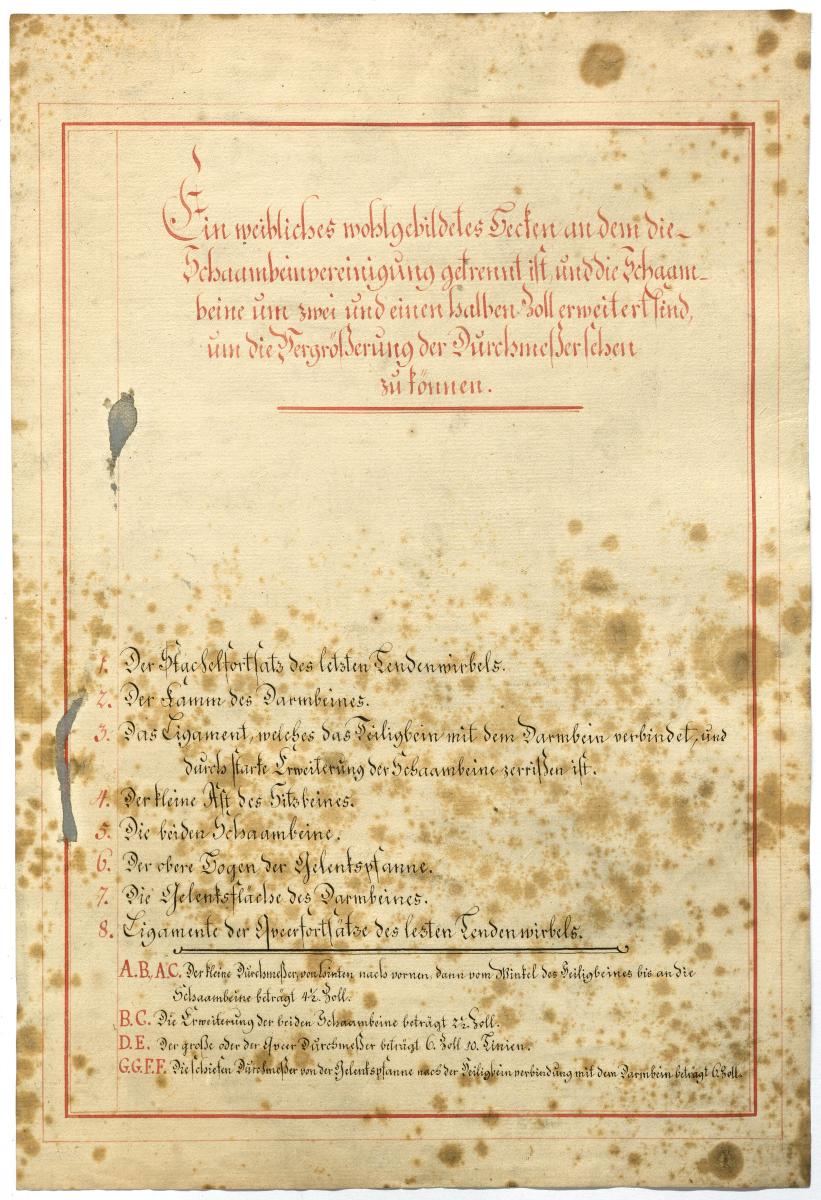 Ein weibliches wohlgebildetes Becken an dem die
Schaambeinvereinigung getrennt ist, und die Schaam-
beine um zwei und einen halben Zoll erweitert sind,
um die Vergrößerung der Durchmeßer sehen
zu können.
1. Der Stachelfortsatz des letzten Lendenwirbels.
2. Der Kamm des Darmbeines.
3. Das Ligament, welches das Heiligbein mit dem Darmbein verbindet, und
durch starke Erweiterung der Schaambeine zerrißen ist.
4. Der kleine Ast des Sitzbeines.
5. Die beiden Schaambeine.
6. Der obere Bogen der Gelenkspfanne.
7. Die Gelenksfläche des Darmbeines.
8. Ligamente der Queerfortsätze des lezten Lendenwirbels.
A.B, A.C. Der kleine Durchmeßer, von hinten nach vornen, dann vom Winkel des Heiligbeines bis an die
Schaambeine beträgt 4½. Zoll.
B.C. Die Erweiterung der beiden Schaambeine beträgt 2½ Zoll.
D.E. Der große oder der Queer Durchmeßer beträgt 6. Zoll 10. Linien.
G.G.F.F. Die schiefen Durchmeßer von der Gelenkspfanne nach der Heiligbeinverbindung mit dem Darmbein beträgt 6. Zoll.